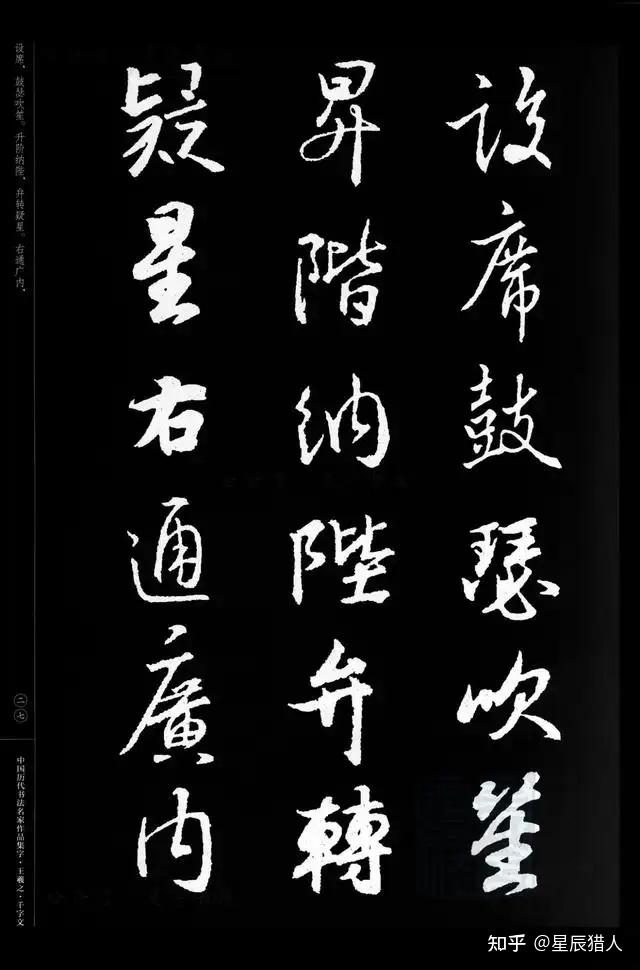 设席鼓瑟吹笙
昇階纳陛弁轉
疑星右通廣内
设席，鼓瑟吹笙。升阶纳陛，弁转疑星。右通广内，
二七
中国历代书法名家作品集字·王羲之·千字文
知乎 @星辰猎人